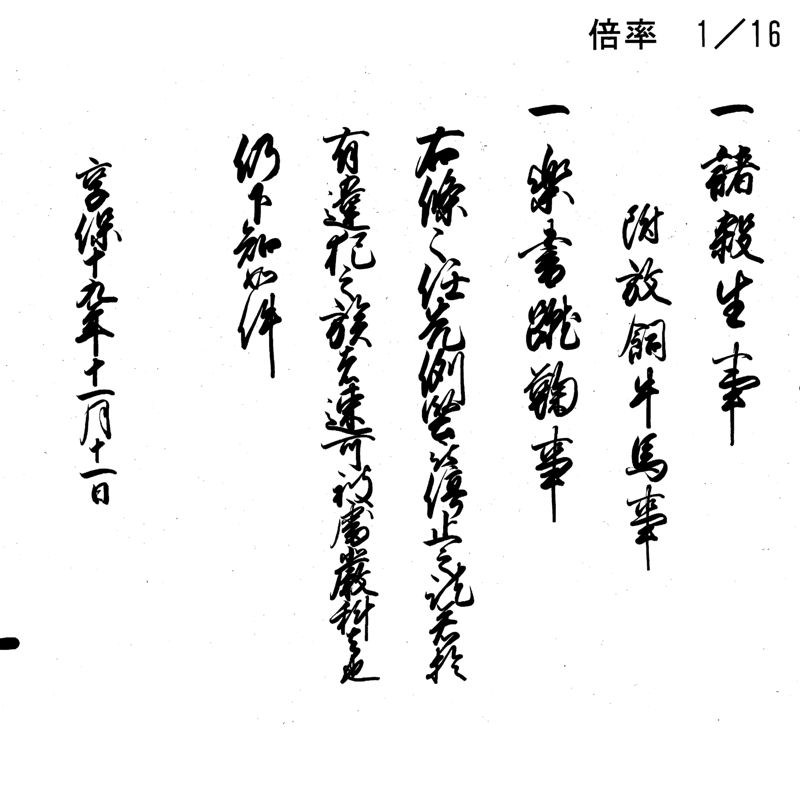 倍率 1/16
一 諸殺生事
附放飼牛馬事
一 楽書蹴鞠事
右條々任先例堅令停止之訖若於
有違犯之族者速可被處嚴科者也
仍下知如件
享保十九年十一月十一日